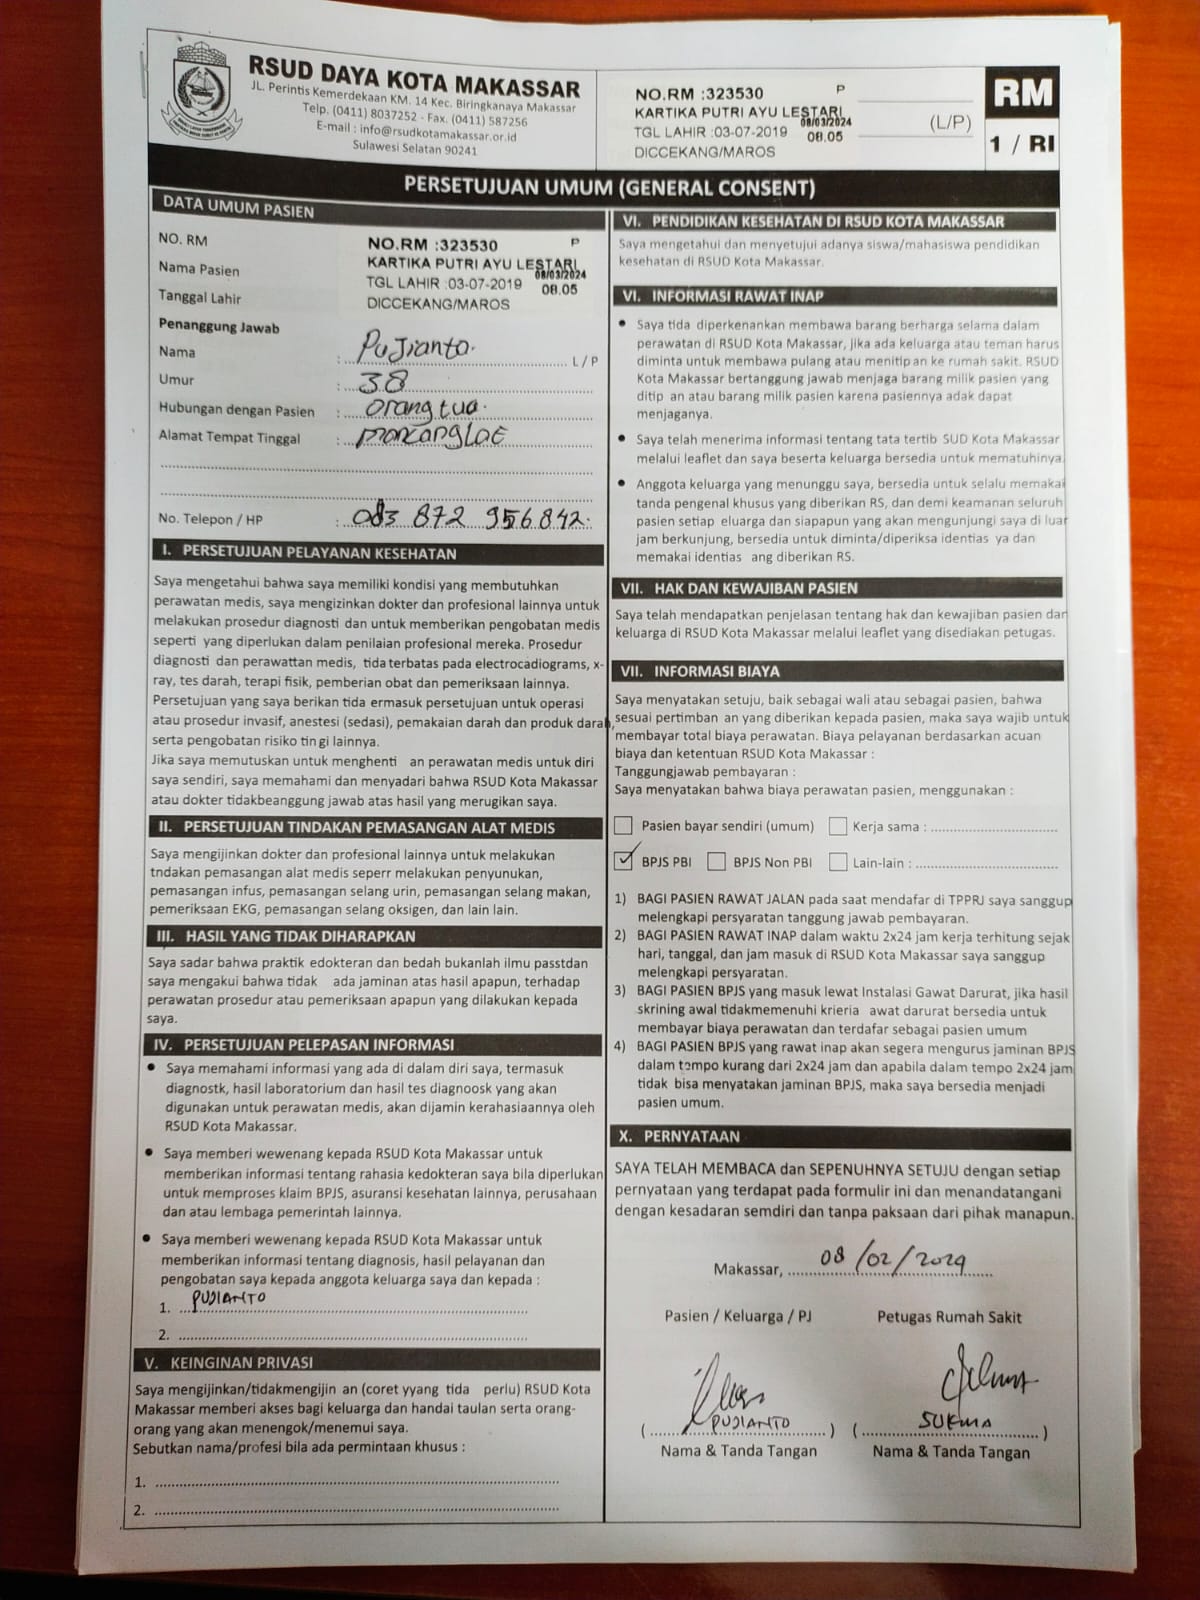 RSUD DAYA KOTA MAKASSAR
JL. Perintis Kemerdekaan KM. 14 Kec. Biringkanaya Makassar
Telp. (0411) 8037252 - Fax. (0411) 587256
E-mail : info@rsudkotamakassar.or.id
Sulawesi Selatan 90241
NO.RM :323530 P
KARTIKA PUTRI AYU LESTARI
08/03/2024
TGL LAHIR :03-07-2019 08.05
DICCEKANG/MAROS
(L/P)
RM
1 / RI
PERSETUJUAN UMUM (GENERAL CONSENT)
DATA UMUM PASIEN
NO. RM
Nama Pasien
Tanggal Lahir
NO.RM :323530 P
KARTIKA PUTRI AYU LESTARI
08/03/2024
TGL LAHIR :03-07-2019 08.05
DICCEKANG/MAROS
Penanggung Jawab
Nama : Pujianto. L / P
Umur : 38
Hubungan dengan Pasien : orang tua.
Alamat Tempat Tinggal :
No. Telepon / HP : 083 872 956 842.
I. PERSETUJUAN PELAYANAN KESEHATAN
Saya mengetahui bahwa saya memiliki kondisi yang membutuhkan
perawatan medis, saya mengizinkan dokter dan profesional lainnya untuk
melakukan prosedur diagnosti dan untuk memberikan pengobatan medis
seperti yang diperlukan dalam penilaian profesional mereka. Prosedur
diagnosti dan perawattan medis, tida terbatas pada electrocadiograms, x-
ray, tes darah, terapi fisik, pemberian obat dan pemeriksaan lainnya.
Persetujuan yang saya berikan tida ermasuk persetujuan untuk operasi
atau prosedur invasif, anestesi (sedasi), pemakaian darah dan produk darah,
serta pengobatan risiko tin gi lainnya.
Jika saya memutuskan untuk menghenti an perawatan medis untuk diri
saya sendiri, saya memahami dan menyadari bahwa RSUD Kota Makassar
atau dokter tidakbeanggung jawab atas hasil yang merugikan saya.
II. PERSETUJUAN TINDAKAN PEMASANGAN ALAT MEDIS
Saya mengijinkan dokter dan profesional lainnya untuk melakukan
tndakan pemasangan alat medis seperr melakukan penyunukan,
pemasangan infus, pemasangan selang urin, pemasangan selang makan,
pemeriksaan EKG, pemasangan selang oksigen, dan lain lain.
III. HASIL YANG TIDAK DIHARAPKAN
Saya sadar bahwa praktik edokteran dan bedah bukanlah ilmu passtdan
saya mengakui bahwa tidak ada jaminan atas hasil apapun, terhadap
perawatan prosedur atau pemeriksaan apapun yang dilakukan kepada
saya.
IV. PERSETUJUAN PELEPASAN INFORMASI
● Saya memahami informasi yang ada di dalam diri saya, termasuk
diagnostk, hasil laboratorium dan hasil tes diagnoosk yang akan
digunakan untuk perawatan medis, akan dijamin kerahasiaannya oleh
RSUD Kota Makassar.
● Saya memberi wewenang kepada RSUD Kota Makassar untuk
memberikan informasi tentang rahasia kedokteran saya bila diperlukan
untuk memproses klaim BPJS, asuransi kesehatan lainnya, perusahaan
dan atau lembaga pemerintah lainnya.
● Saya memberi wewenang kepada RSUD Kota Makassar untuk
memberikan informasi tentang diagnosis, hasil pelayanan dan
pengobatan saya kepada anggota keluarga saya dan kepada :
1. PUJIANTO
2.
V. KEINGINAN PRIVASI
Saya mengijinkan/tidakmengijin an (coret yyang tida perlu) RSUD Kota
Makassar memberi akses bagi keluarga dan handai taulan serta orang-
orang yang akan menengok/menemui saya.
Sebutkan nama/profesi bila ada permintaan khusus :
1.
2.
VI. PENDIDIKAN KESEHATAN DI RSUD KOTA MAKASSAR
Saya mengetahui dan menyetujui adanya siswa/mahasiswa pendidikan
kesehatan di RSUD Kota Makassar.
VI. INFORMASI RAWAT INAP
● Saya tida diperkenankan membawa barang berharga selama dalam
perawatan di RSUD Kota Makassar, jika ada keluarga atau teman harus
diminta untuk membawa pulang atau menitip an ke rumah sakit. RSUD
Kota Makassar bertanggung jawab menjaga barang milik pasien yang
ditip an atau barang milik pasien karena pasiennya adak dapat
menjaganya.
● Saya telah menerima informasi tentang tata tertib SUD Kota Makassar
melalui leaflet dan saya beserta keluarga bersedia untuk mematuhinya.
● Anggota keluarga yang menunggu saya, bersedia untuk selalu memakai
tanda pengenal khusus yang diberikan RS, dan demi keamanan seluruh
pasien setiap eluarga dan siapapun yang akan mengunjungi saya di luar
jam berkunjung, bersedia untuk diminta/diperiksa identias ya dan
memakai identias ang diberikan RS.
VII. HAK DAN KEWAJIBAN PASIEN
Saya telah mendapatkan penjelasan tentang hak dan kewajiban pasien dan
keluarga di RSUD Kota Makassar melalui leaflet yang disediakan petugas.
VII. INFORMASI BIAYA
Saya menyatakan setuju, baik sebagai wali atau sebagai pasien, bahwa
sesuai pertimban an yang diberikan kepada pasien, maka saya wajib untuk
membayar total biaya perawatan. Biaya pelayanan berdasarkan acuan
biaya dan ketentuan RSUD Kota Makassar :
Tanggungjawab pembayaran :
Saya menyatakan bahwa biaya perawatan pasien, menggunakan :
Pasien bayar sendiri (umum) Kerja sama :
✓ BPJS PBI BPJS Non PBI Lain-lain :
1) BAGI PASIEN RAWAT JALAN pada saat mendafar di TPPRJ saya sanggup
melengkapi persyaratan tanggung jawab pembayaran.
2) BAGI PASIEN RAWAT INAP dalam waktu 2x24 jam kerja terhitung sejak
hari, tanggal, dan jam masuk di RSUD Kota Makassar saya sanggup
melengkapi persyaratan.
3) BAGI PASIEN BPJS yang masuk lewat Instalasi Gawat Darurat, jika hasil
skrining awal tidakmemenuhi krieria awat darurat bersedia untuk
membayar biaya perawatan dan terdafar sebagai pasien umum
4) BAGI PASIEN BPJS yang rawat inap akan segera mengurus jaminan BPJS
dalam tempo kurang dari 2x24 jam dan apabila dalam tempo 2x24 jam
tidak bisa menyatakan jaminan BPJS, maka saya bersedia menjadi
pasien umum.
X. PERNYATAAN
SAYA TELAH MEMBACA dan SEPENUHNYA SETUJU dengan setiap
pernyataan yang terdapat pada formulir ini dan menandatangani
dengan kesadaran semdiri dan tanpa paksaan dari pihak manapun.
Makassar, 08/02/2024
Pasien / Keluarga / PJ Petugas Rumah Sakit
(PUJIANTO) (SUKMA)
Nama & Tanda Tangan Nama & Tanda Tangan